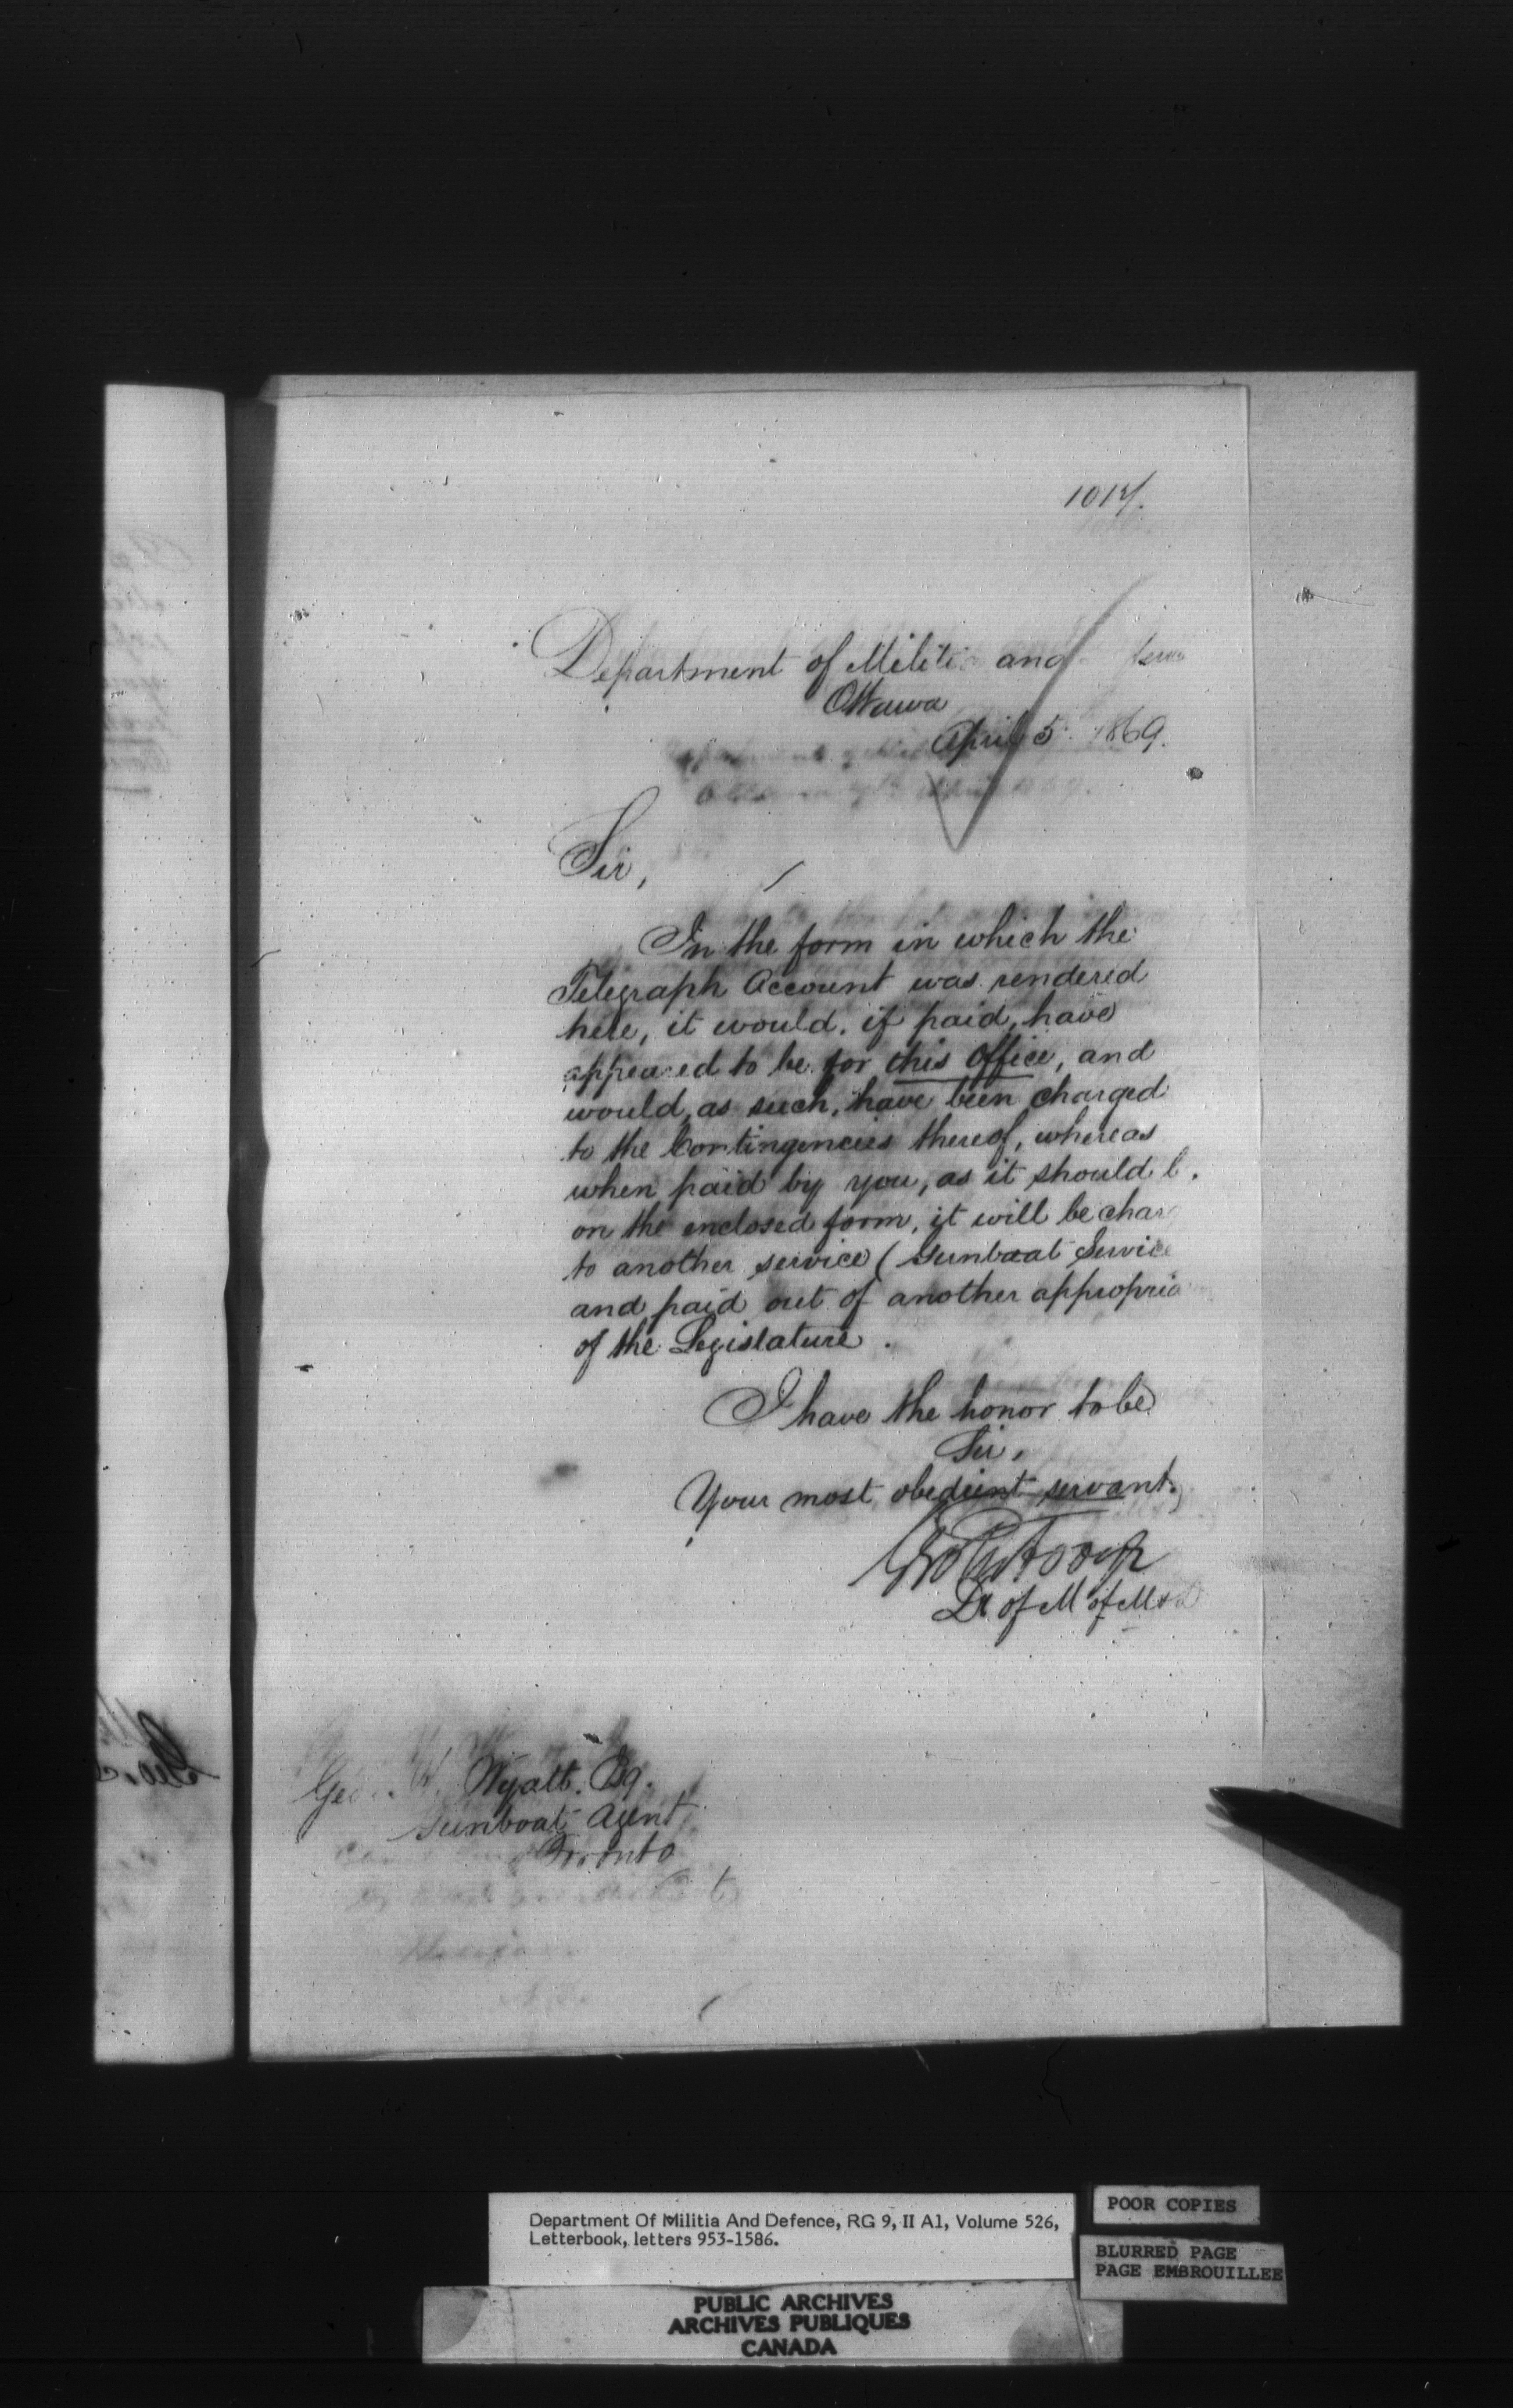 1017.
Department of Militia and
Ottawa
April 5. 1869.
Sir,
In the form in which the
Telegraph Account was rendered
here, it would, if paid, have
appeared to be for this Office, and
would, as such, have been charged
to the Contingencies thereof, whereas
when paid by you, as it should b
on the enclosed form, it will be charg
to another service (Gunboat Service
and paid out of another appropria
of the Legislature.
I have the honor to be
Sir,
Your most obedient servant,
of M of M &
Geo. W. Wyatt. Esq.
Gunboat Agent
Toronto
Department Of Militia And Defence, RG 9, II A1, Volume 526,
Letterbook, letters 953-1586.
POOR COPIES
BLURRED PAGE
PAGE EMBROUILLEE
PUBLIC ARCHIVES
ARCHIVES PUBLIQUES
CANADA